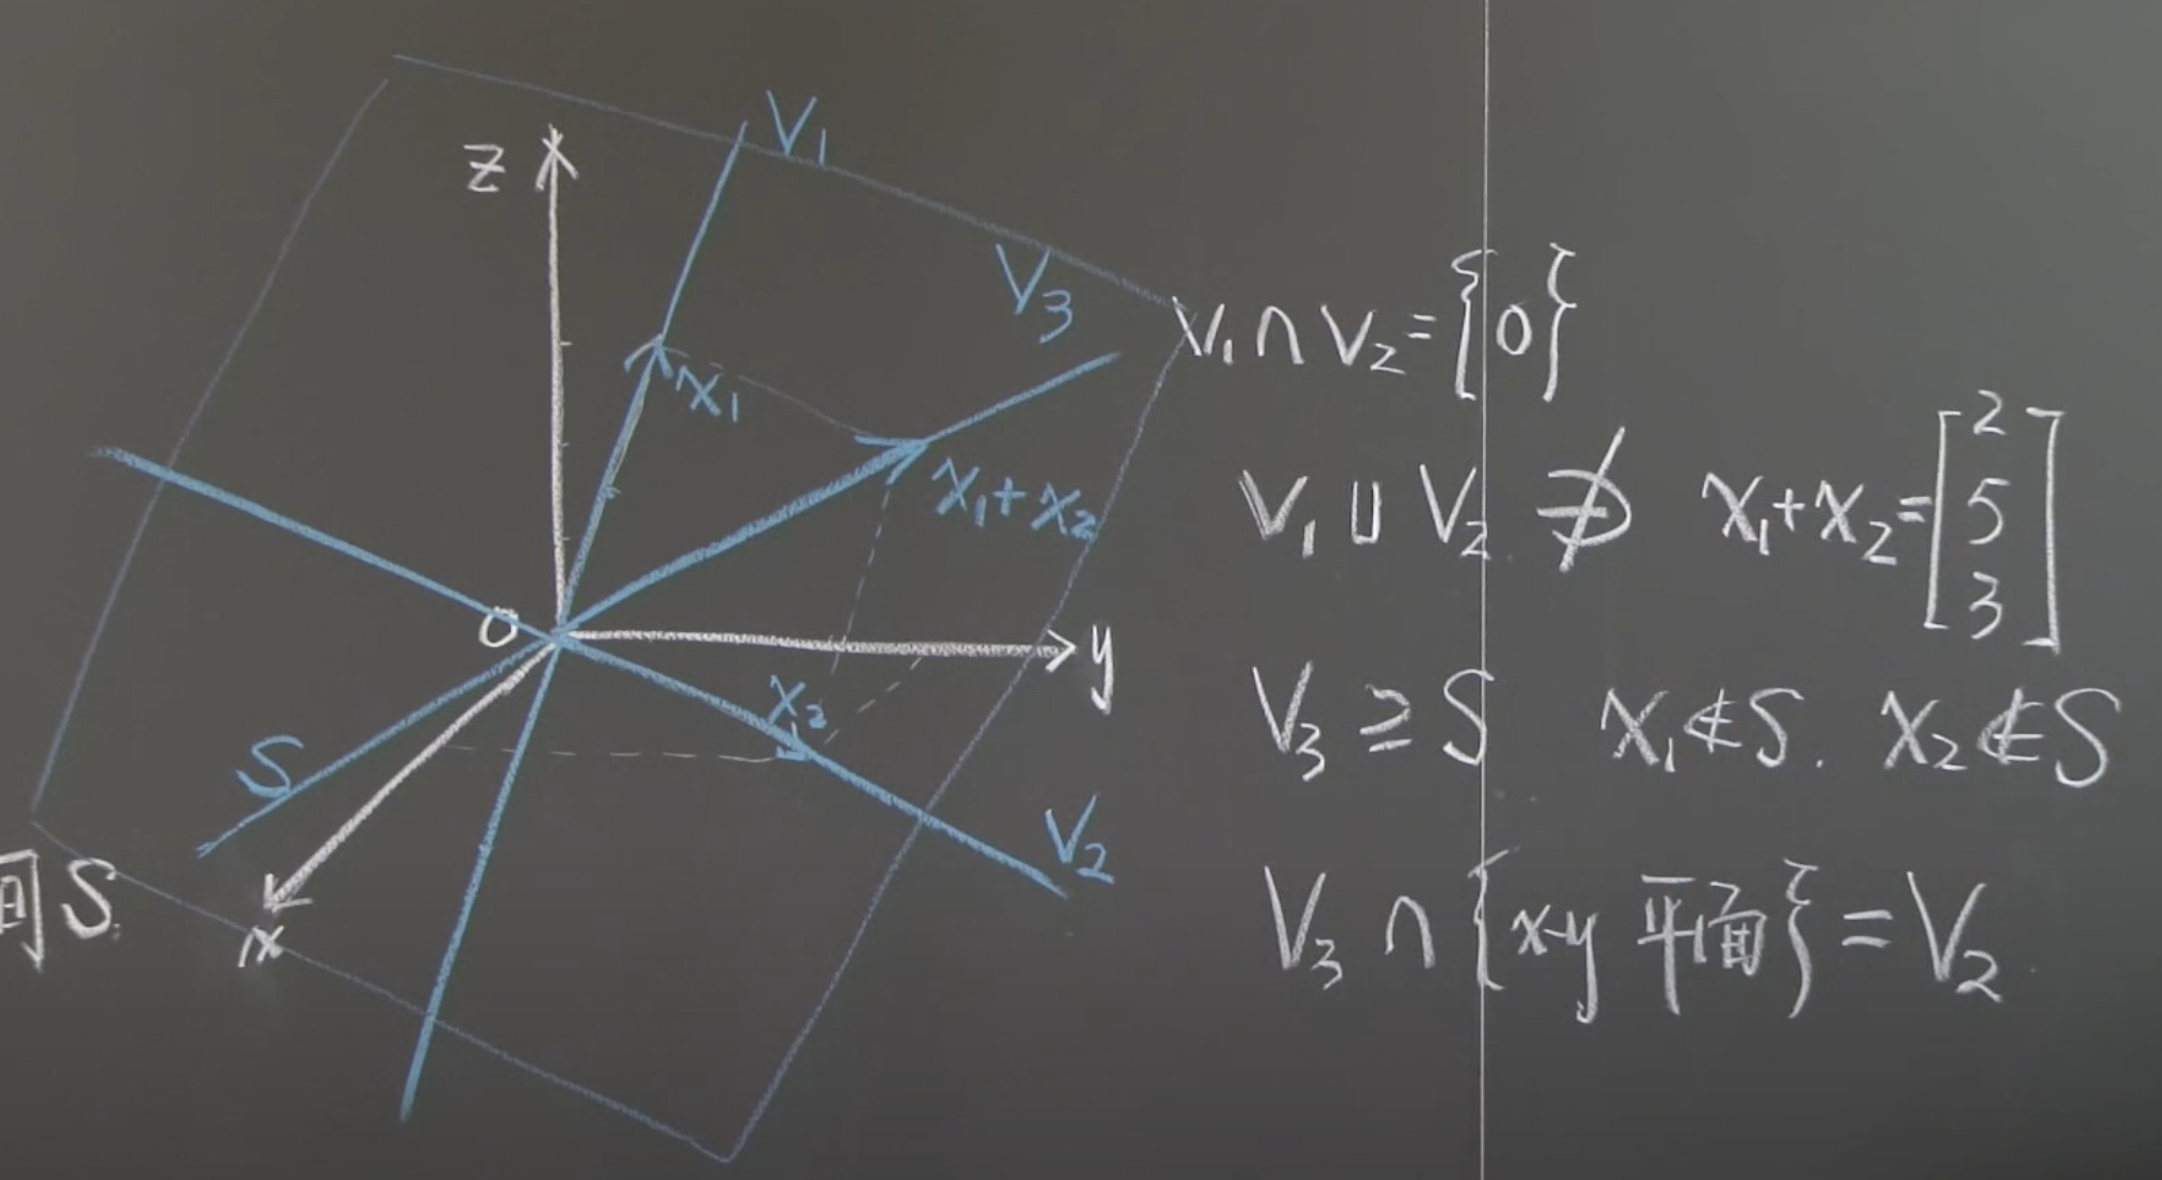 z
V₁
V₃
x₁
x₁+x₂
0
y
x₂
S
V₂
x
间S.
V₁∩V₂={0}
V₁∪V₂ ∌ x₁+x₂=[2 5 3]
V₃⊇S x₁∉S. x₂∉S
V₃∩{x-y平面}=V₂